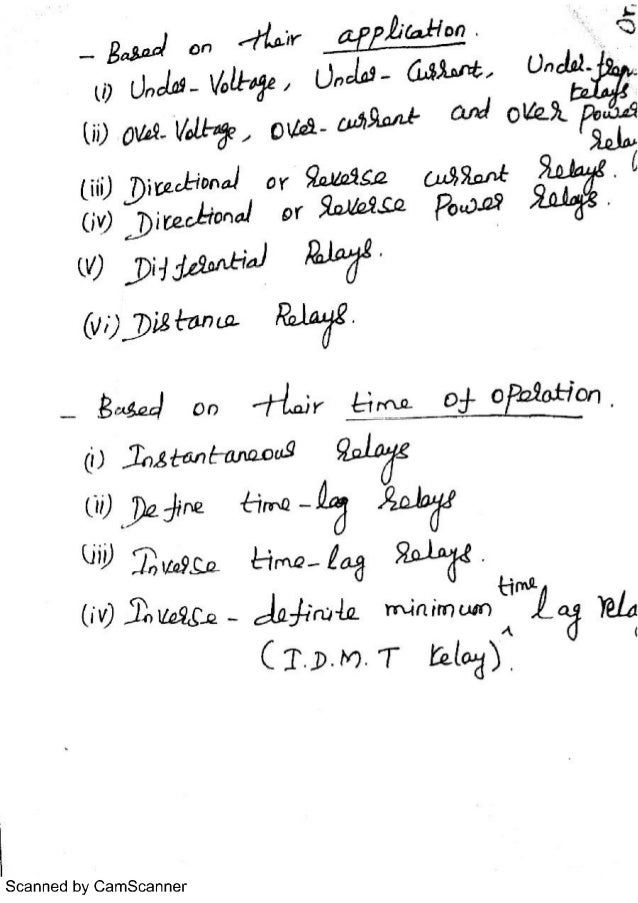 Or
- Based on their application.
(i) Under-Voltage, Under-Current, Under-freq. relays
(ii) Over-Voltage, Over-current and over Power Rela
(iii) Directional or Reverse current Relays. (
(iv) Directional or Reverse Power Relays.
(v) Differential Relays.
(vi) Distance Relays.
- Based on their time of operation.
(i) Instantaneous Relays
(ii) Define time-lag Relays
(iii) Inverse time-lag Relays.
(iv) Inverse-definite minimum time lag rela
(I.D.M.T relay).
Scanned by CamScanner